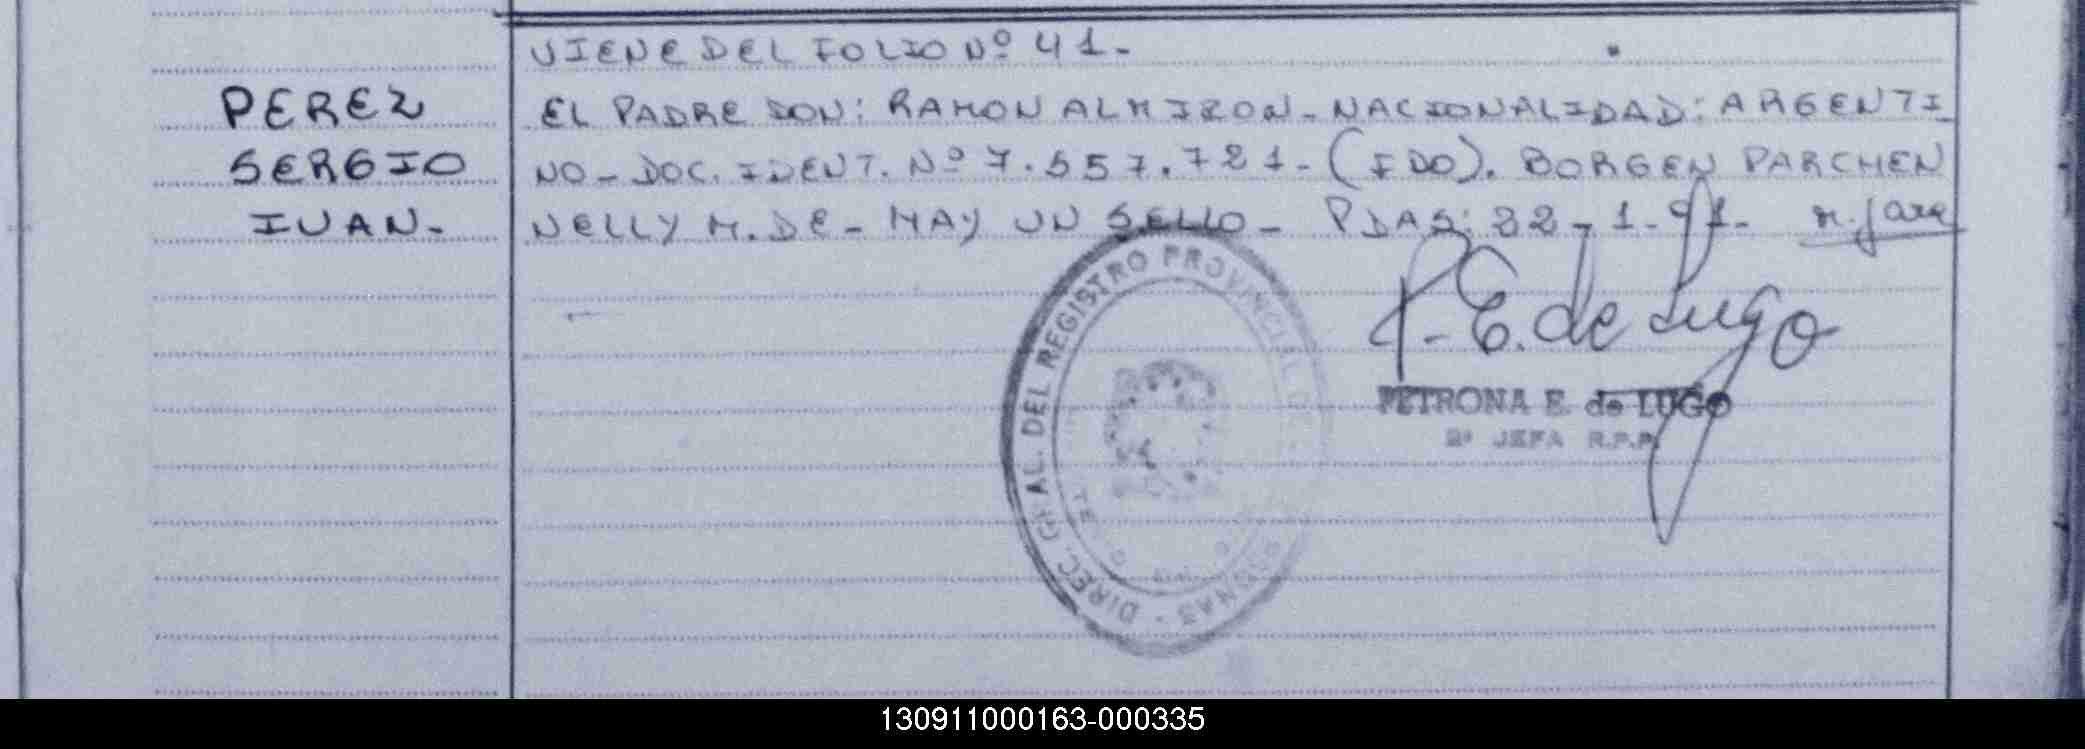 VIENE DEL FOLIO Nº 41.-
PEREZ
SERGIO
IVAN.-
EL PADRE DON: RAMON ALMIRON.- NACIONALIDAD: ARGENTI
NO - DOC. IDENT. Nº 7.557.721.- (FDO). BORGEN PARCHEN
NELLY M. DE - HAY UN SELLO - PDAS: 22-1-91- M. Jara
P. E. de Lugo
PETRONA E. de LUGO
2ª JEFA R.P.P.
DIREC. GRAL. DEL REGISTRO PROVINCIAL DE
PERSONAS
130911000163-000335